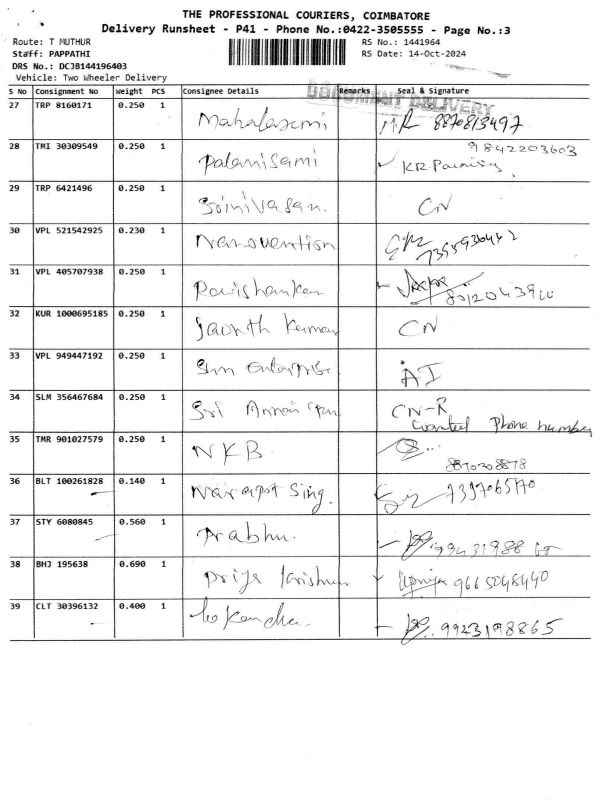 THE PROFESSIONAL COURIERS, COIMBATORE
Delivery Runsheet - P41 - Phone No.:0422-3505555 - Page No.:3
Route: T MUTHUR RS No.: 1441964
Staff: PAPPATHI RS Date: 14-Oct-2024
DRS No.: DCJB144196403
Vehicle: Two Wheeler Delivery
DOCUMENT DELIVERY
S No Consignment No Weight PCS Consignee Details Remarks Seal & Signature
27 TRP 8160171 0.250 1 Mahalaxmi 8870813497
28 TMI 30309549 0.250 1 Palanisami 9842203603
29 TRP 6421496 0.250 1 Srinivasan. CN
30 VPL 521542925 0.230 1 Nanovention
31 VPL 405707938 0.250 1 Ravishanker
32 KUR 1000695185 0.250 1 CN
33 VPL 949447192 0.250 1 AI
34 SLM 356467684 0.250 1 Sri CN-R
wanted Phone number
35 TMR 901027579 0.250 1 NKB
8870308878
36 BLT 100261828 0.140 1 Sing.
37 STY 6080845 0.560 1 Prabhu.
38 BHJ 195638 0.690 1 Priya 9665048440
39 CLT 30396132 0.400 1 9923198865